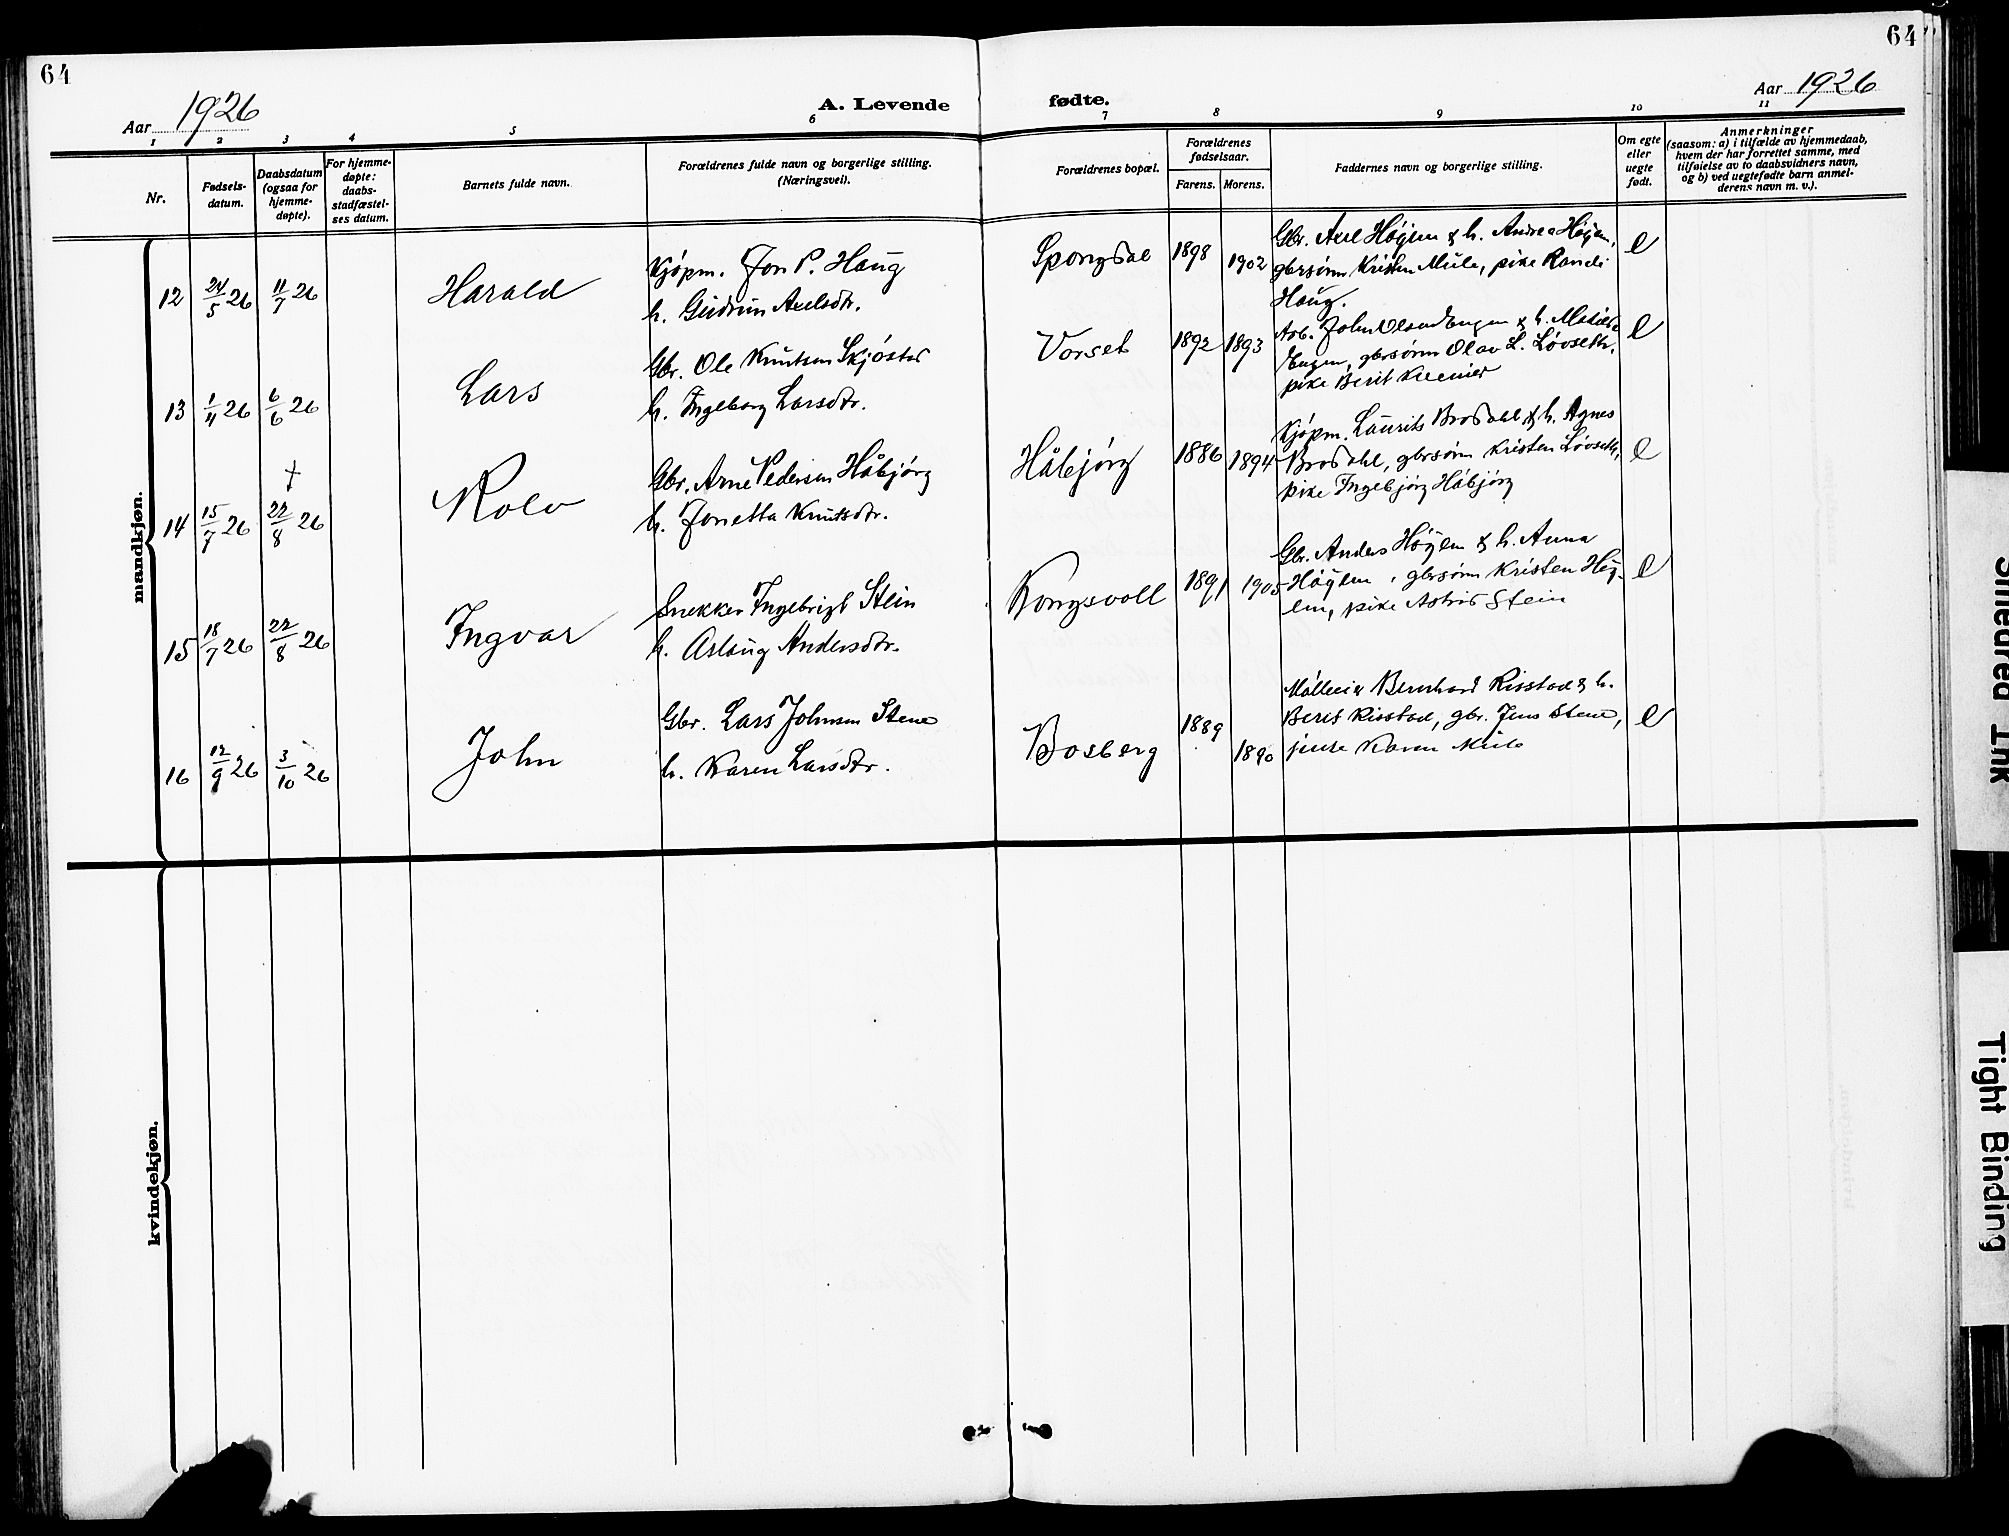 64
64
Aar 1926
A. Levende fødte.
Aar 1926
1 2 3 4 5 6 7 8 9 10 11
Nr.
Fødsels-
datum.
Daabsdatum
(ogsaa for
hjemme-
døpte).
For hjemme-
døpte:
daabs-
stadfæstel-
ses datum.
Barnets fulde navn.
Forældrenes fulde navn og borgerlige stilling.
(Næringsvei).
Forældrenes bopæl.
Forældrenes
fødselsaar.
Farens. Morens.
Faddernes navn og borgerlige stilling.
Om egte
eller
uegte
født.
Anmerkninger
(saasom: a) i tilfælde av hjemmedaab,
hvem der har forrettet samme, med
tilføielse av to daabsvidners navn,
og b) ved uegtefødte barn anmel-
derens navn m. v.).
mandkjøn.
12 24/5 26 11/7 26 Harald
Kjøpm. Jon P. Haug
h. Gudrun Axelsdtr.
Spongdal 1898 1902
Gbr. Axel Høgen & h. Andrea Høgen,
gbrsønn Kristen Mule, pike Randi
Haug.
e
13 1/4 26 6/6 26 Lars
Gbr. Ole Knutsen Skjøstad
h. Ingeborg Larsdtr.
Vorset 1892 1893
Arb. John Olsen Engen & h. Matilde
Engen, gbrsønn Olav L. Løvseth,
pike Berit
e
†
14 15/7 26 22/8 26 Rolv
Gbr. Arne Pedersen Håbjørg
h. Jonetta Knutsdtr.
Håbjørg 1886 1894
Kjøpm. Laurits Brodahl & h. Agnes
Brodahl, gbrsønn Kristen Løvseth,
pike Ingebjørg Håbjørg
e
15 18/7 26 22/8 26 Ingvar
Snekker Ingebrigt Stein
h. Aslaug Andersdtr.
Kongsvoll 1891 1905
Gbr. Anders Høgen & h. Anna
Høgen, gbrsønn Kristen Høg-
en, pike Astrid Stein
e
16 12/9 26 3/10 26 John
Gbr. Lars Johnsen Stene
h. Karen Larsdtr.
Bosberg 1889 1890
Møllei Bernhard Risstad & h.
Berit Risstad, gbr. Jens Stene,
pike Karen Mule
e
kvindekjøn.
Smeared Ink
Tight Binding